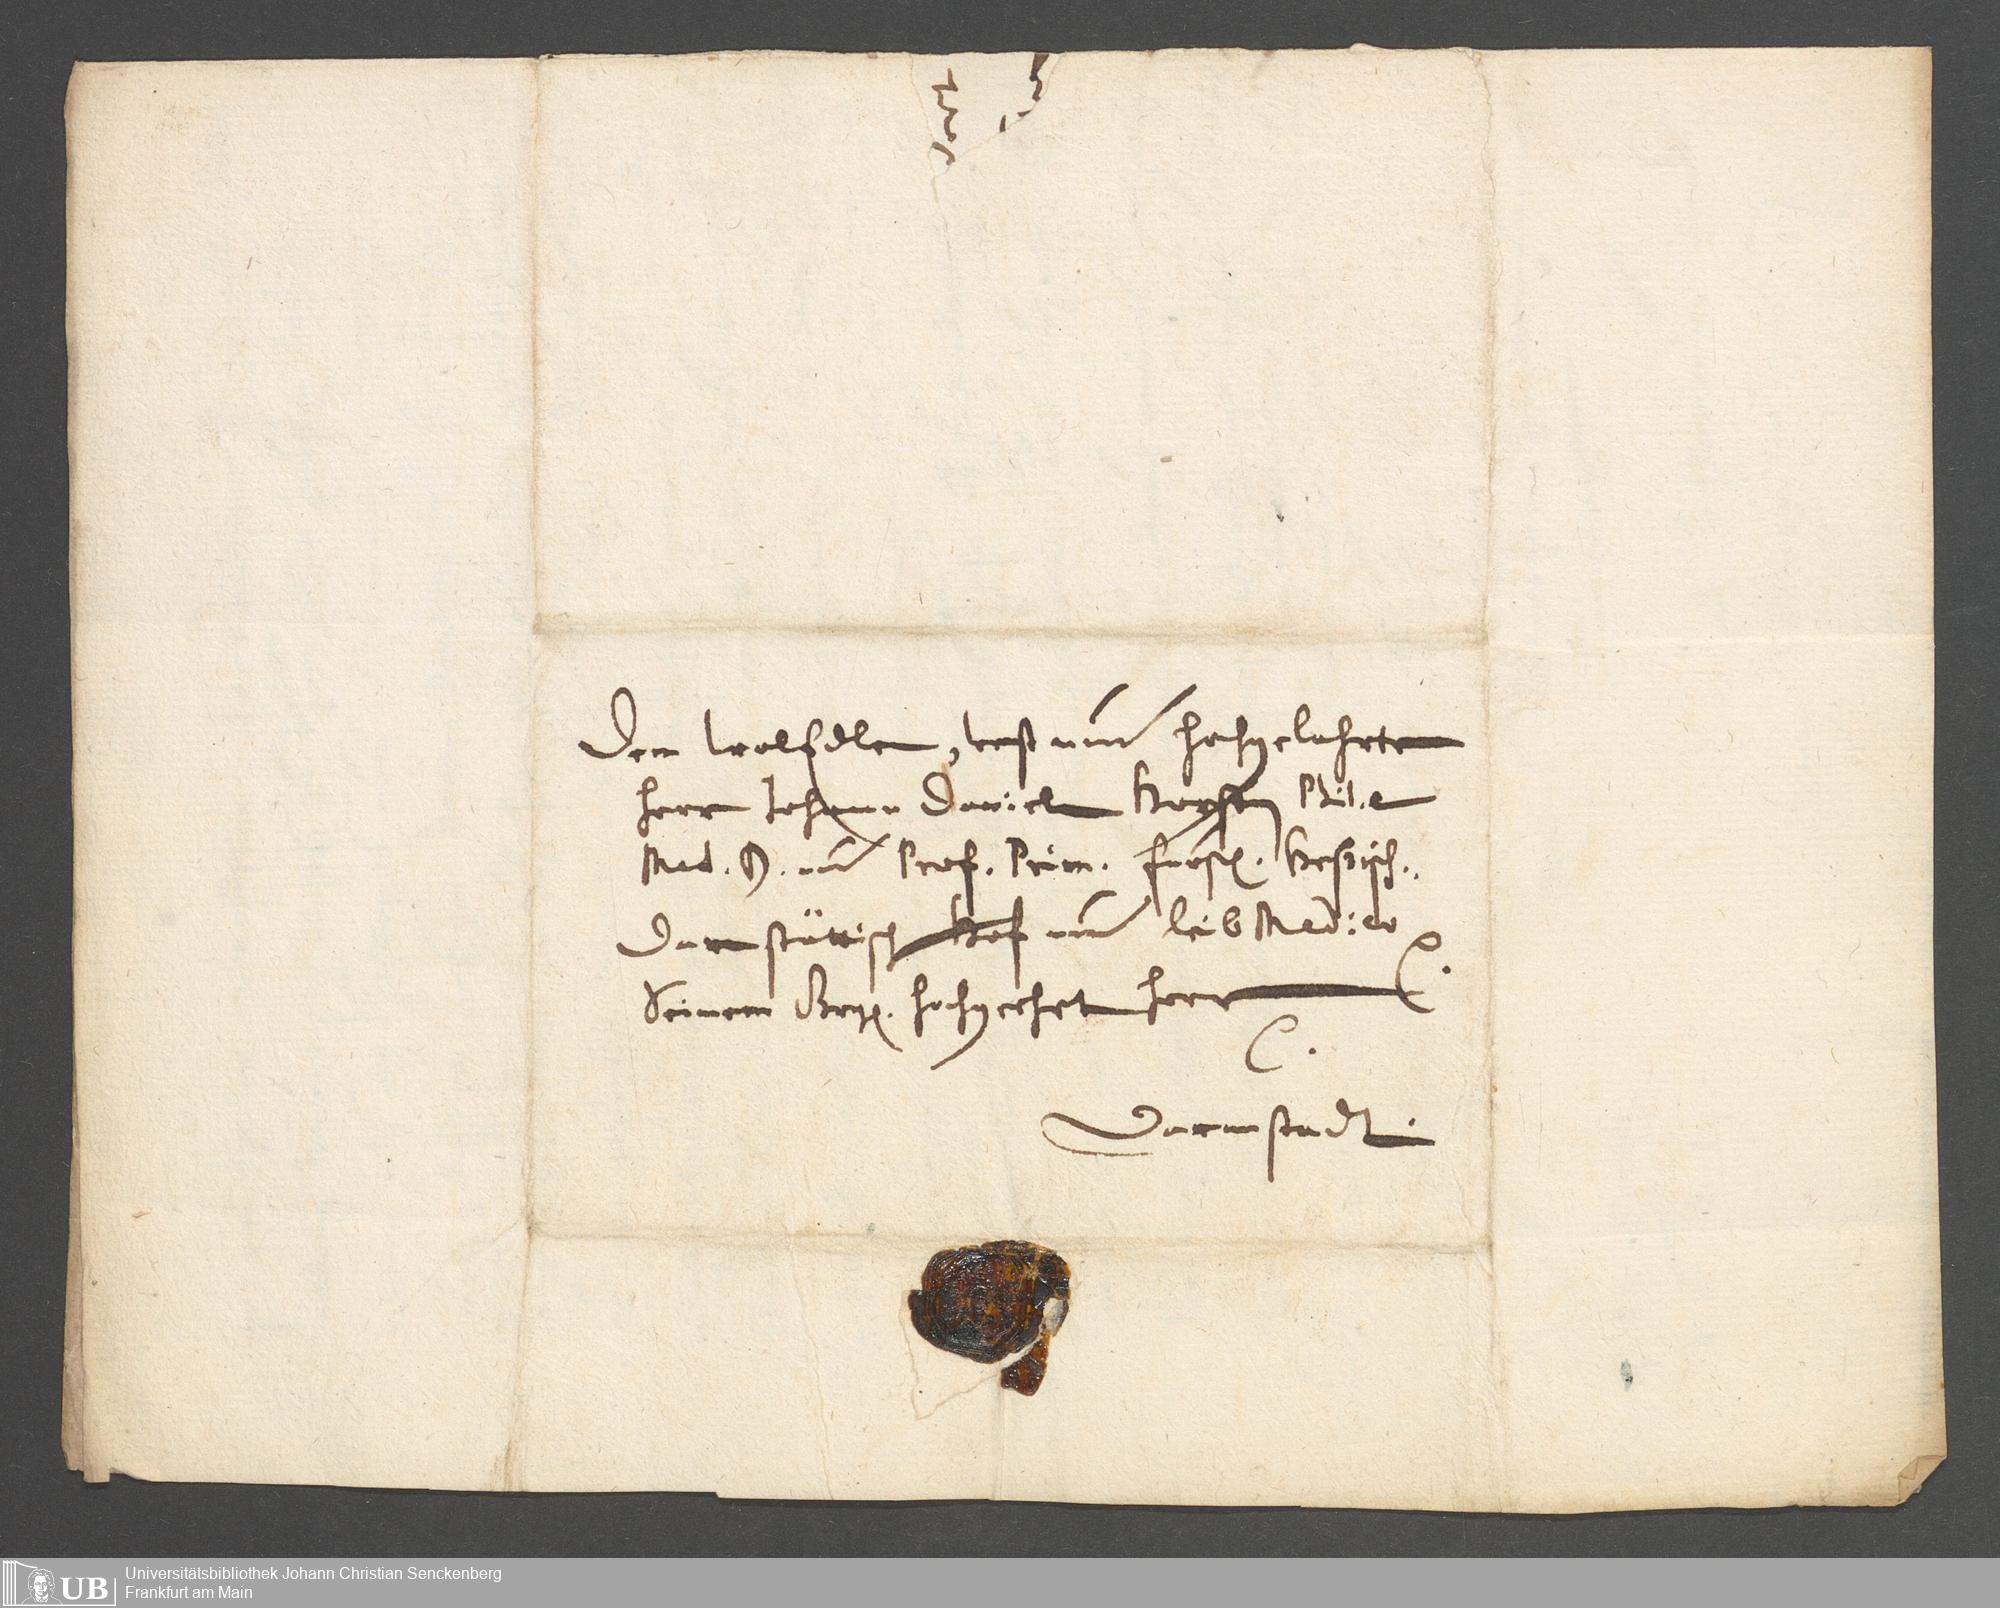 Dem WolEdlen, Vest und Hochgelahrten
Herrn Johann Daniel Horsten Phil. e
Med. D. und Prof. Prim. Fürstl. Heßisch..
Darmstättisch Hof und Leib Medico
Seinem Großg. Hochgeehrten Herrn
Darmstadt.
Universitätsbibliothek Johann Christian Senckenberg
Frankfurt am Main
UB